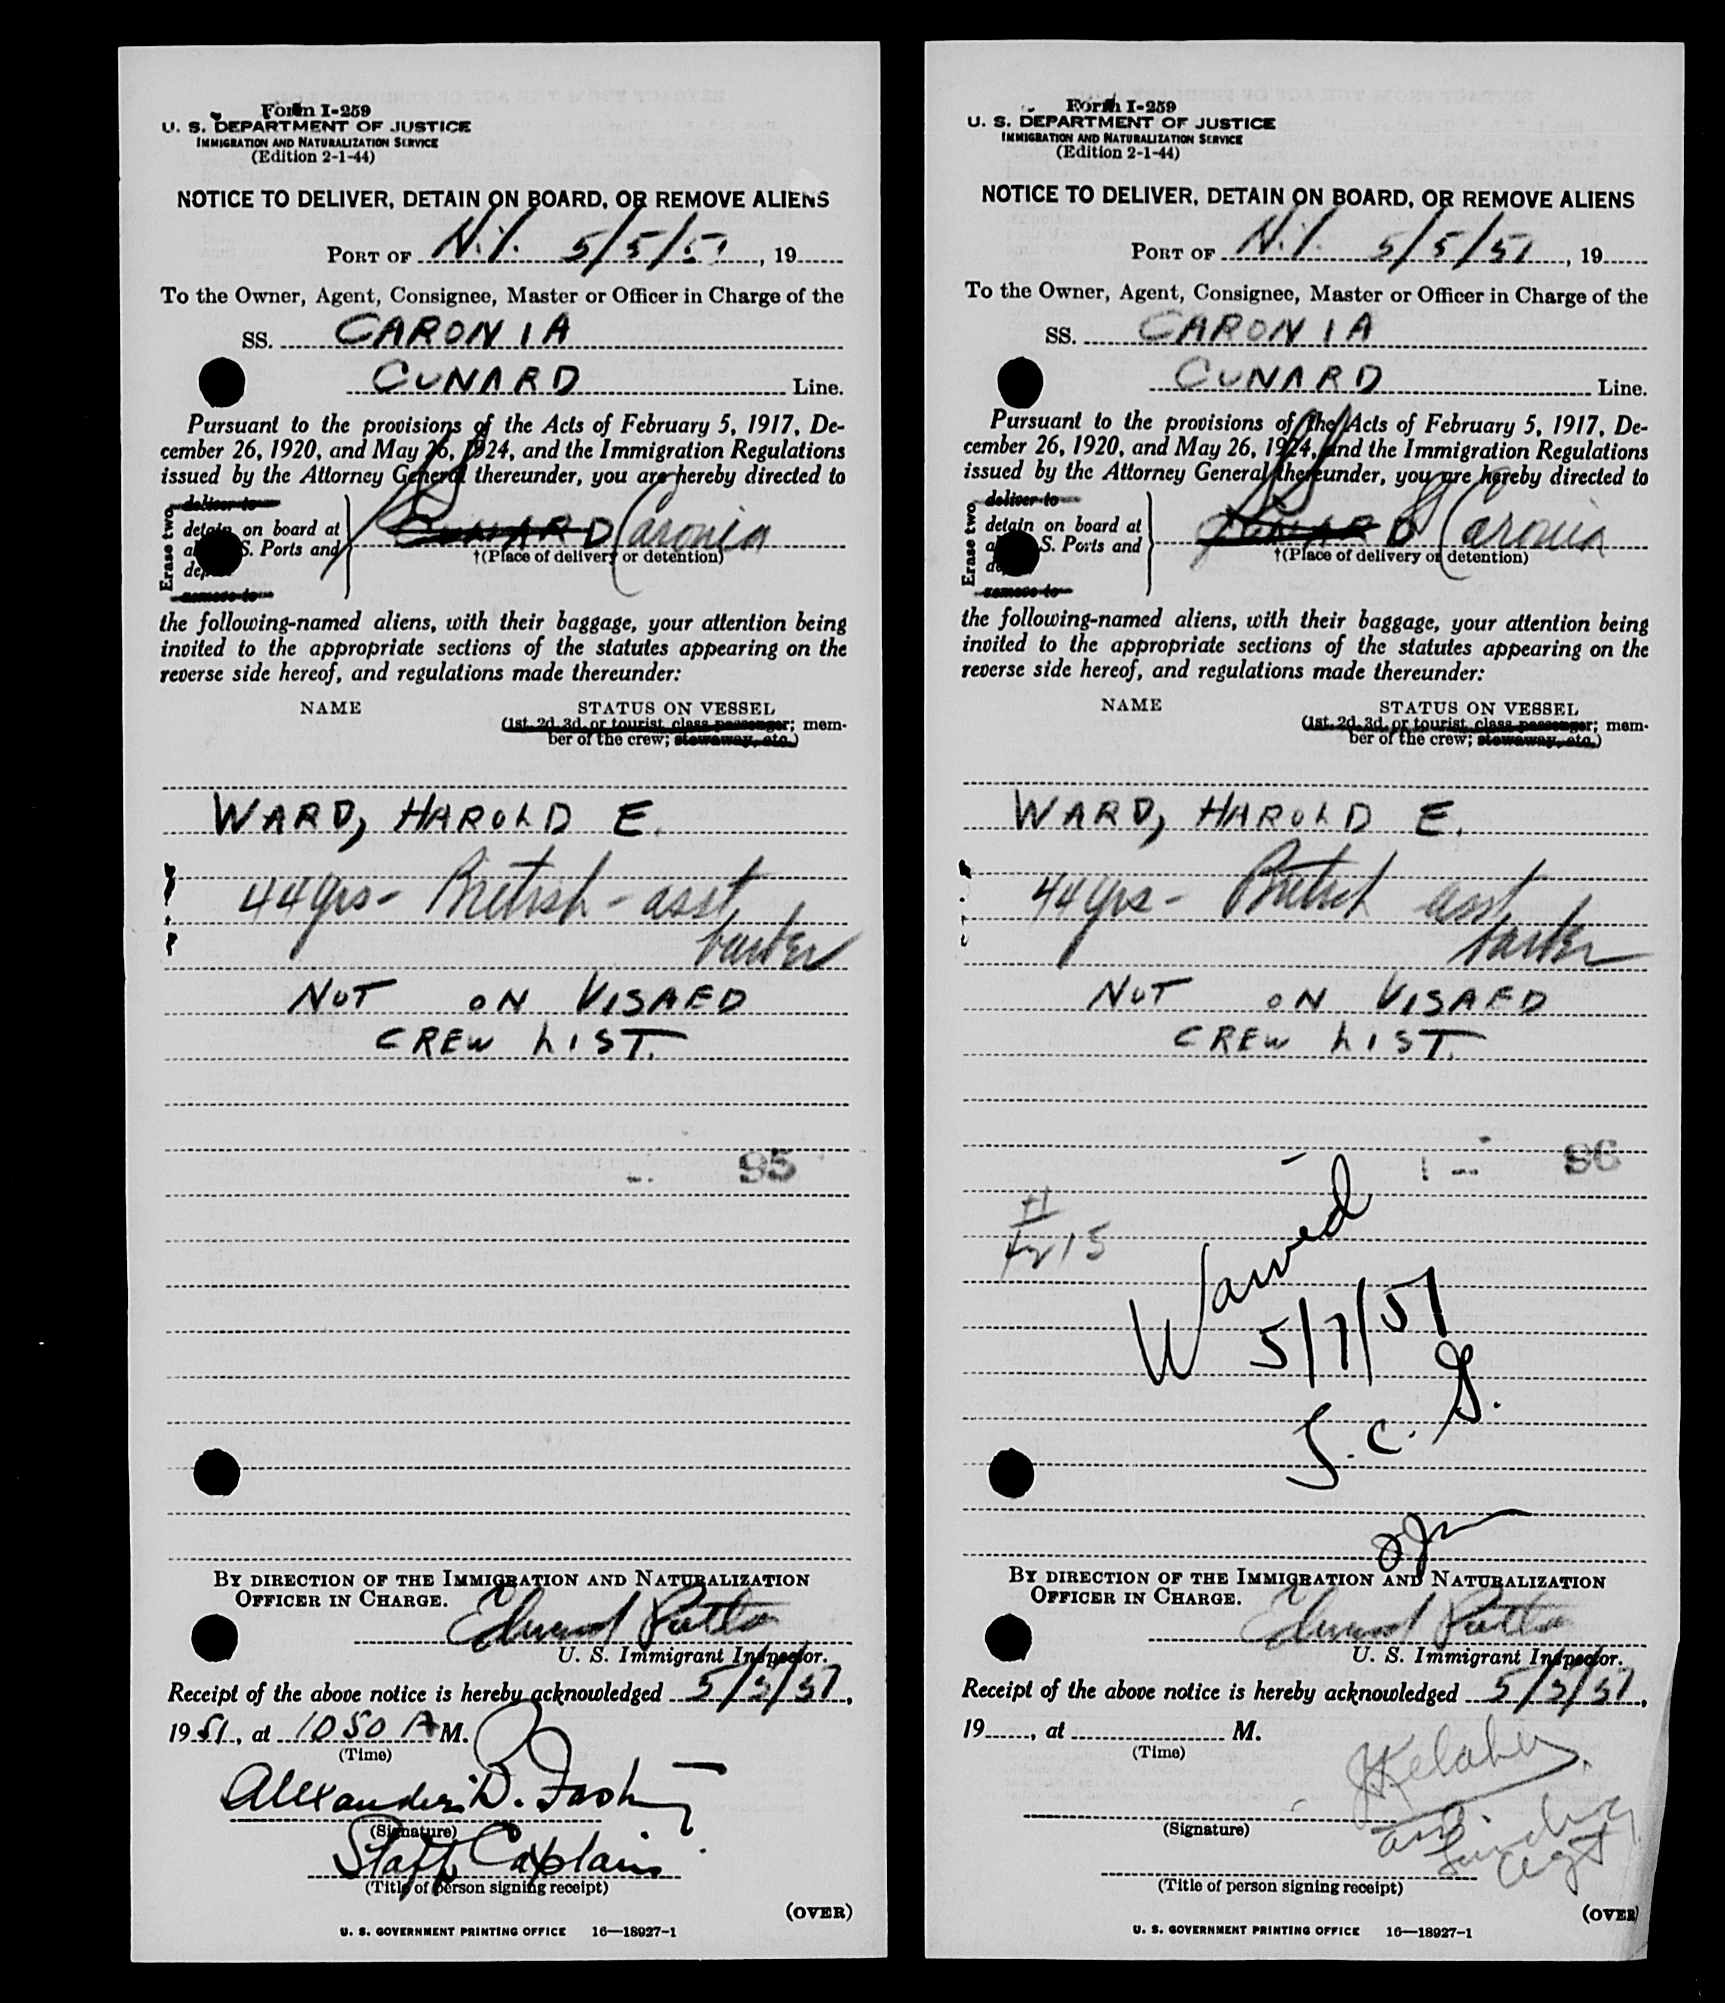 Form I-259
U. S. DEPARTMENT OF JUSTICE
IMMIGRATION AND NATURALIZATION SERVICE
(Edition 2-1-44)
NOTICE TO DELIVER, DETAIN ON BOARD, OR REMOVE ALIENS
PORT OF N.Y. 5/5/51, 19
To the Owner, Agent, Consignee, Master or Officer in Charge of the
SS. CARONIA
CUNARD Line.
Pursuant to the provisions of the Acts of February 5, 1917, De-
cember 26, 1920, and May 26, 1924, and the Immigration Regulations
issued by the Attorney General thereunder, you are hereby directed to
Erase two
deliver to
detain on board at
S. Ports and
remove to
CUNARD Caronia
†(Place of delivery or detention)
the following-named aliens, with their baggage, your attention being
invited to the appropriate sections of the statutes appearing on the
reverse side hereof, and regulations made thereunder:
NAME STATUS ON VESSEL
(1st, 2d, 3d, or tourist class passenger; mem-
ber of the crew; stowaway, etc.)
WARD, HAROLD E.
44 yrs - British - asst
NOT ON VISAED
CREW LIST.
95
BY DIRECTION OF THE IMMIGRATION AND NATURALIZATION
OFFICER IN CHARGE.
Edward
U. S. Immigrant Inspector.
Receipt of the above notice is hereby acknowledged 5/5/51,
1951, at 1050 A M.
(Time)
Alexander B.
(Signature)
Staff Captain
(Title of person signing receipt)
(OVER)
U. S. GOVERNMENT PRINTING OFFICE 16—18927-1
Form I-259
U. S. DEPARTMENT OF JUSTICE
IMMIGRATION AND NATURALIZATION SERVICE
(Edition 2-1-44)
NOTICE TO DELIVER, DETAIN ON BOARD, OR REMOVE ALIENS
PORT OF N.Y. 5/5/51, 19
To the Owner, Agent, Consignee, Master or Officer in Charge of the
SS. CARONIA
CUNARD Line.
Pursuant to the provisions of the Acts of February 5, 1917, De-
cember 26, 1920, and May 26, 1924, and the Immigration Regulations
issued by the Attorney General thereunder, you are hereby directed to
Erase two
deliver to
detain on board at
S. Ports and
remove to
CUNARD Caronia
†(Place of delivery or detention)
the following-named aliens, with their baggage, your attention being
invited to the appropriate sections of the statutes appearing on the
reverse side hereof, and regulations made thereunder:
NAME STATUS ON VESSEL
(1st, 2d, 3d, or tourist class passenger; mem-
ber of the crew; stowaway, etc.)
WARD, HAROLD E.
44 yrs - British asst
NOT ON VISAED
CREW LIST.
96
15
Waived
5/7/51
J. C. G.
BY DIRECTION OF THE IMMIGRATION AND NATURALIZATION
OFFICER IN CHARGE.
Edward
U. S. Immigrant Inspector.
Receipt of the above notice is hereby acknowledged 5/5/51,
19, at M.
(Time)
Kelaher
(Signature)
Agt
(Title of person signing receipt)
(OVER)
U. S. GOVERNMENT PRINTING OFFICE 16—18927-1